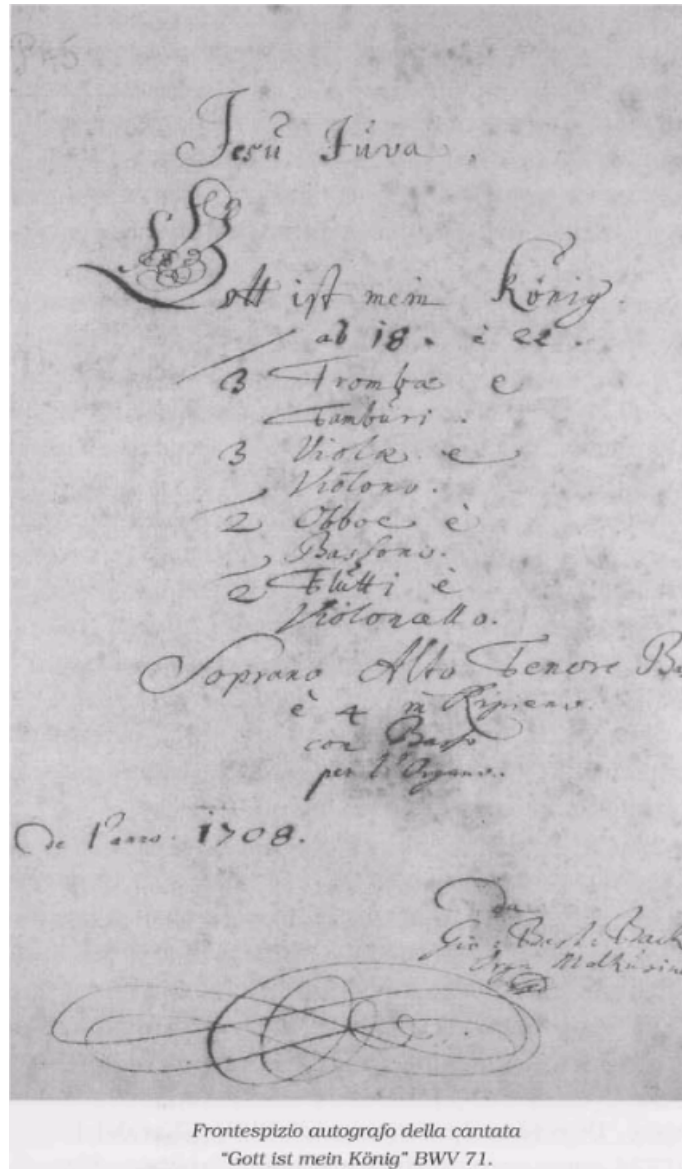 Jesu Juva.
Gott ist mein König.
ab 18. è 22.
3 Trombæ e
Tamburi.
3 Violæ e
Violono.
2 Obboe è
Bassono.
2 Flutti è
Violoncello.
Soprano Alto Tenore Ba
è 4 in Ripieno.
con Basso
per l'Organo.
de l'anno. 1708.
da
Gio: Bast: Bach
Org: Molhusino
Frontespizio autografo della cantata
"Gott ist mein König" BWV 71.